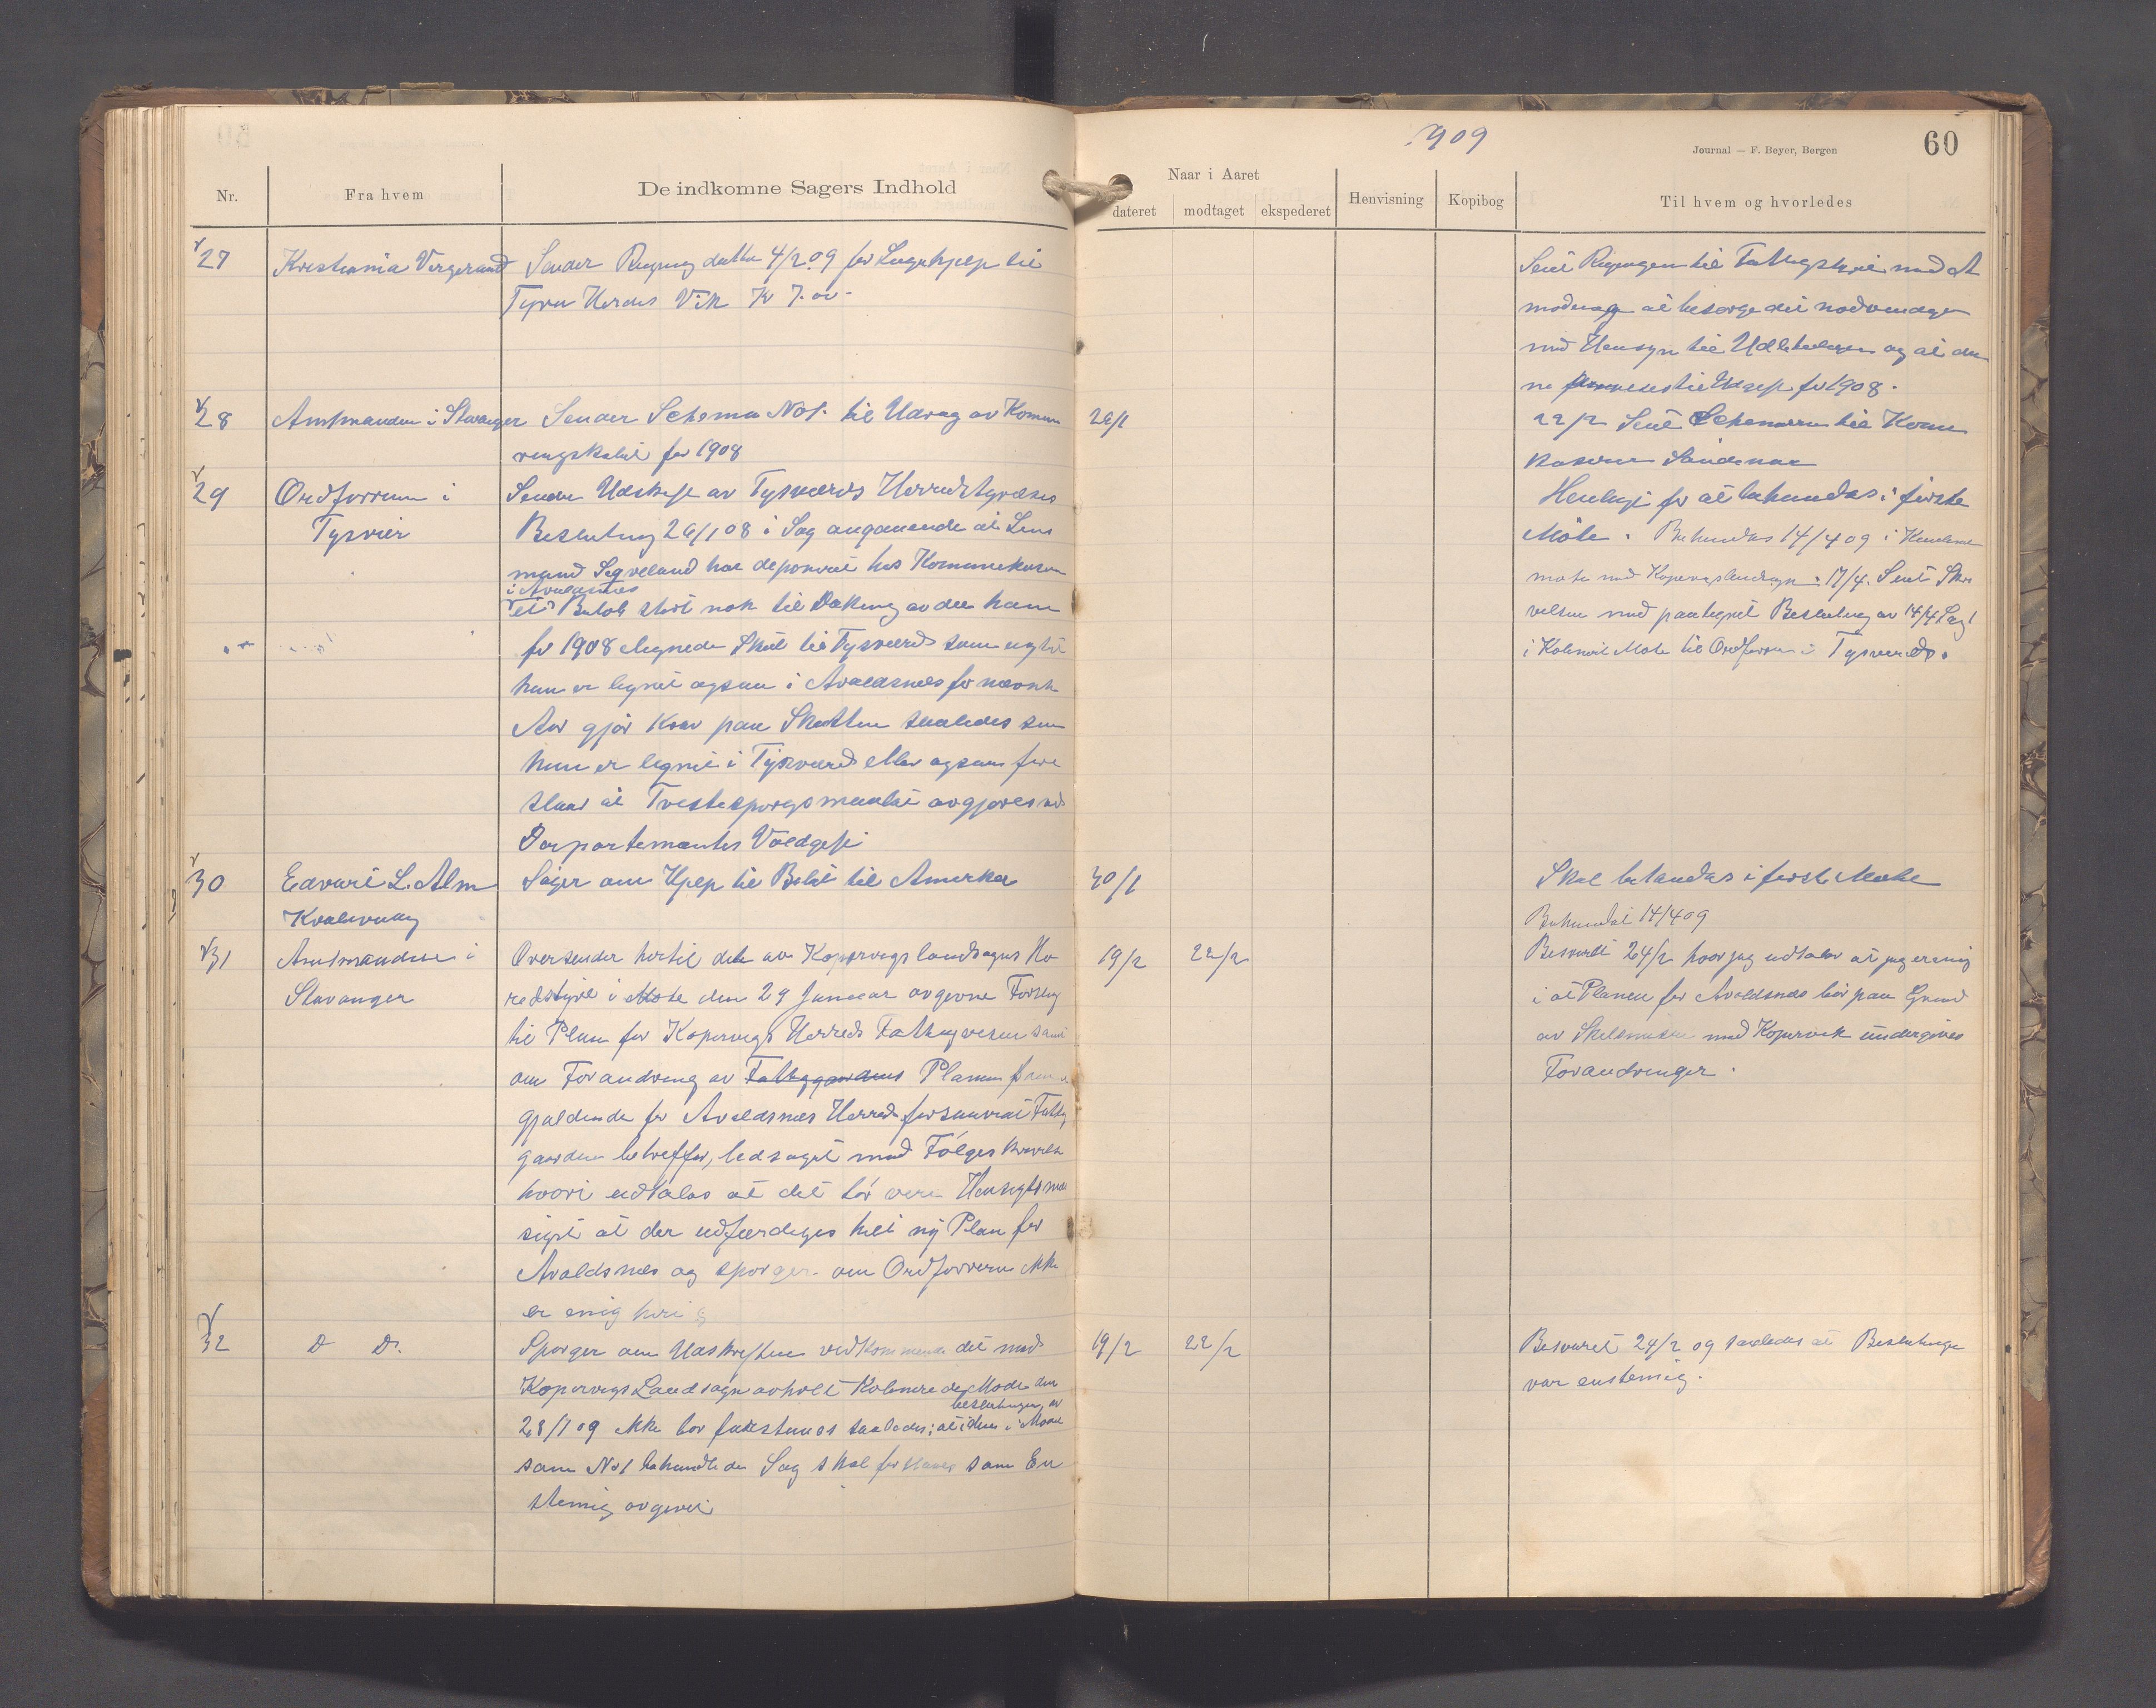 909
Journal — F. Beyer, Bergen
60
Nr.
Fra hvem
De indkomne Sagers Indhold
Naar i Aaret
dateret
modtaget
ekspederet
Henvisning
Kopibog
Til hvem og hvorledes
27
Kristiania Vergeraad
Sender Regning datto 4/2 09 for Lægehjelp til
Vik Kr 7.00-
Sent Regningen til
at besørge det nødvendige
med Hensyn til og at den
ne til Udgift for 1908.
28
Amtmanden i Stavanger
Sender Schema No 1. til Udrag av Kommu
for 1908
26/1
22/2 Sent Schemaen til Kom
29
Ordføreren i
Tysvær
Sender Udskrift av Tysværs Herredstyrelses
Beslutning 26/1 08 i Sag angaaende at Lens
mand Sqveland har deponeret hos Kommunekassen
i Avaldsnes
et Beløb stort nok til Dækning av den ham
for 1908 ilignede Skat til Tysvær som
han er lignet ogsaa i Avaldsnes for nævnte
Aar gjør Krav paa Skatten saaledes som
han er lignet i Tysvær eller ogsaa fore
slaar at Tvistespørgsmaalet avgjøres ved
Departementets Voldgift
Henlagt for at behandles i første
Møte. Behandles 14/4 09 i
møte med Kopervigslandsogn. 17/4. Sent Skri
velsen med paategnet Beslutning av 14/4 Sag 1
i Kombineret Møte til Ordføreren i Tysvær.
30
Edvart L. Alm
Kvalavaag
Søger om Hjelp til Billet til Amerika
30/1
Skal behandles i første Møte
Behandlet 14/4 09
31
Amtmanden i
Stavanger
Oversender hertil det av Kopervigs landsogns He
redstyre i Møte den 29 Januar avgevne Forslag
til Plan for Kopervigs Herreds Fattigvesen samt
om Forandring av Fattiggaardens Planen for
gjældende for Avaldsnes Herred forsaavidt Fattig
gaarden betreffer, ledsaget med Følgeskrivelse
hvori udtales at det bør være Hensigtsmæs
sigst at der udfærdiges helt ny Plan for
Avaldsnes og spørger om Ordføreren ikke
er enig heri
19/2
22/2
Besvaret 24/2 hvor jeg udtaler at jeg er enig
i at Planen for Avaldsnes bør paa Grund
av Skilsmissen med Kopervik undergives
Forandringer.
32
D D.
Spørger om Udskriften vedkommende det med
Kopervigs Landsogn avholt Kobinerede Møde den
beslutningen av
28/1 09 ikke bør saaledes; at den i Møde
som No 1 behandlede Sag skal som En
stemig avgivet
19/2
22/2
Besvaret 24/2 09 saaledes at Beslutningen
var enstemig.